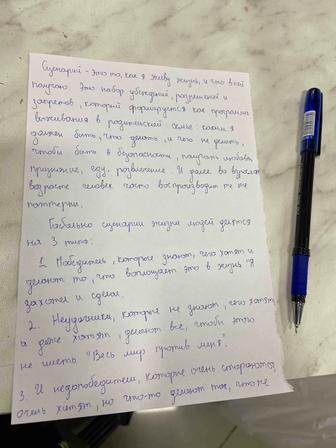 Сценарий - это то, как я живу жизнь, и что в ней
получаю. Это набор убеждений, разрешений и
запретов, который формируется как программа
выживания в родительской семье: каким я
должен быть, что делать, и чего не делать,
чтобы быть в безопасности, получать любовь,
признание, еду, развлечение. И далее во взрослом
возрасте человек часто воспроизводит те же
паттерны.
Глобально сценарии жизни людей делятся
на 3 типа:
1. Победители, которые знают, чего хотят и
делают то, что воплощает это в жизнь "Я
захотел и сделал.
2. Неудачники, которые не знают, чего хотят,
а даже хотят, делают все, чтобы этого
не иметь "Весь мир против меня.
3. И недопобедители, которые очень стараются,
очень хотят, но что-то делают так, что не